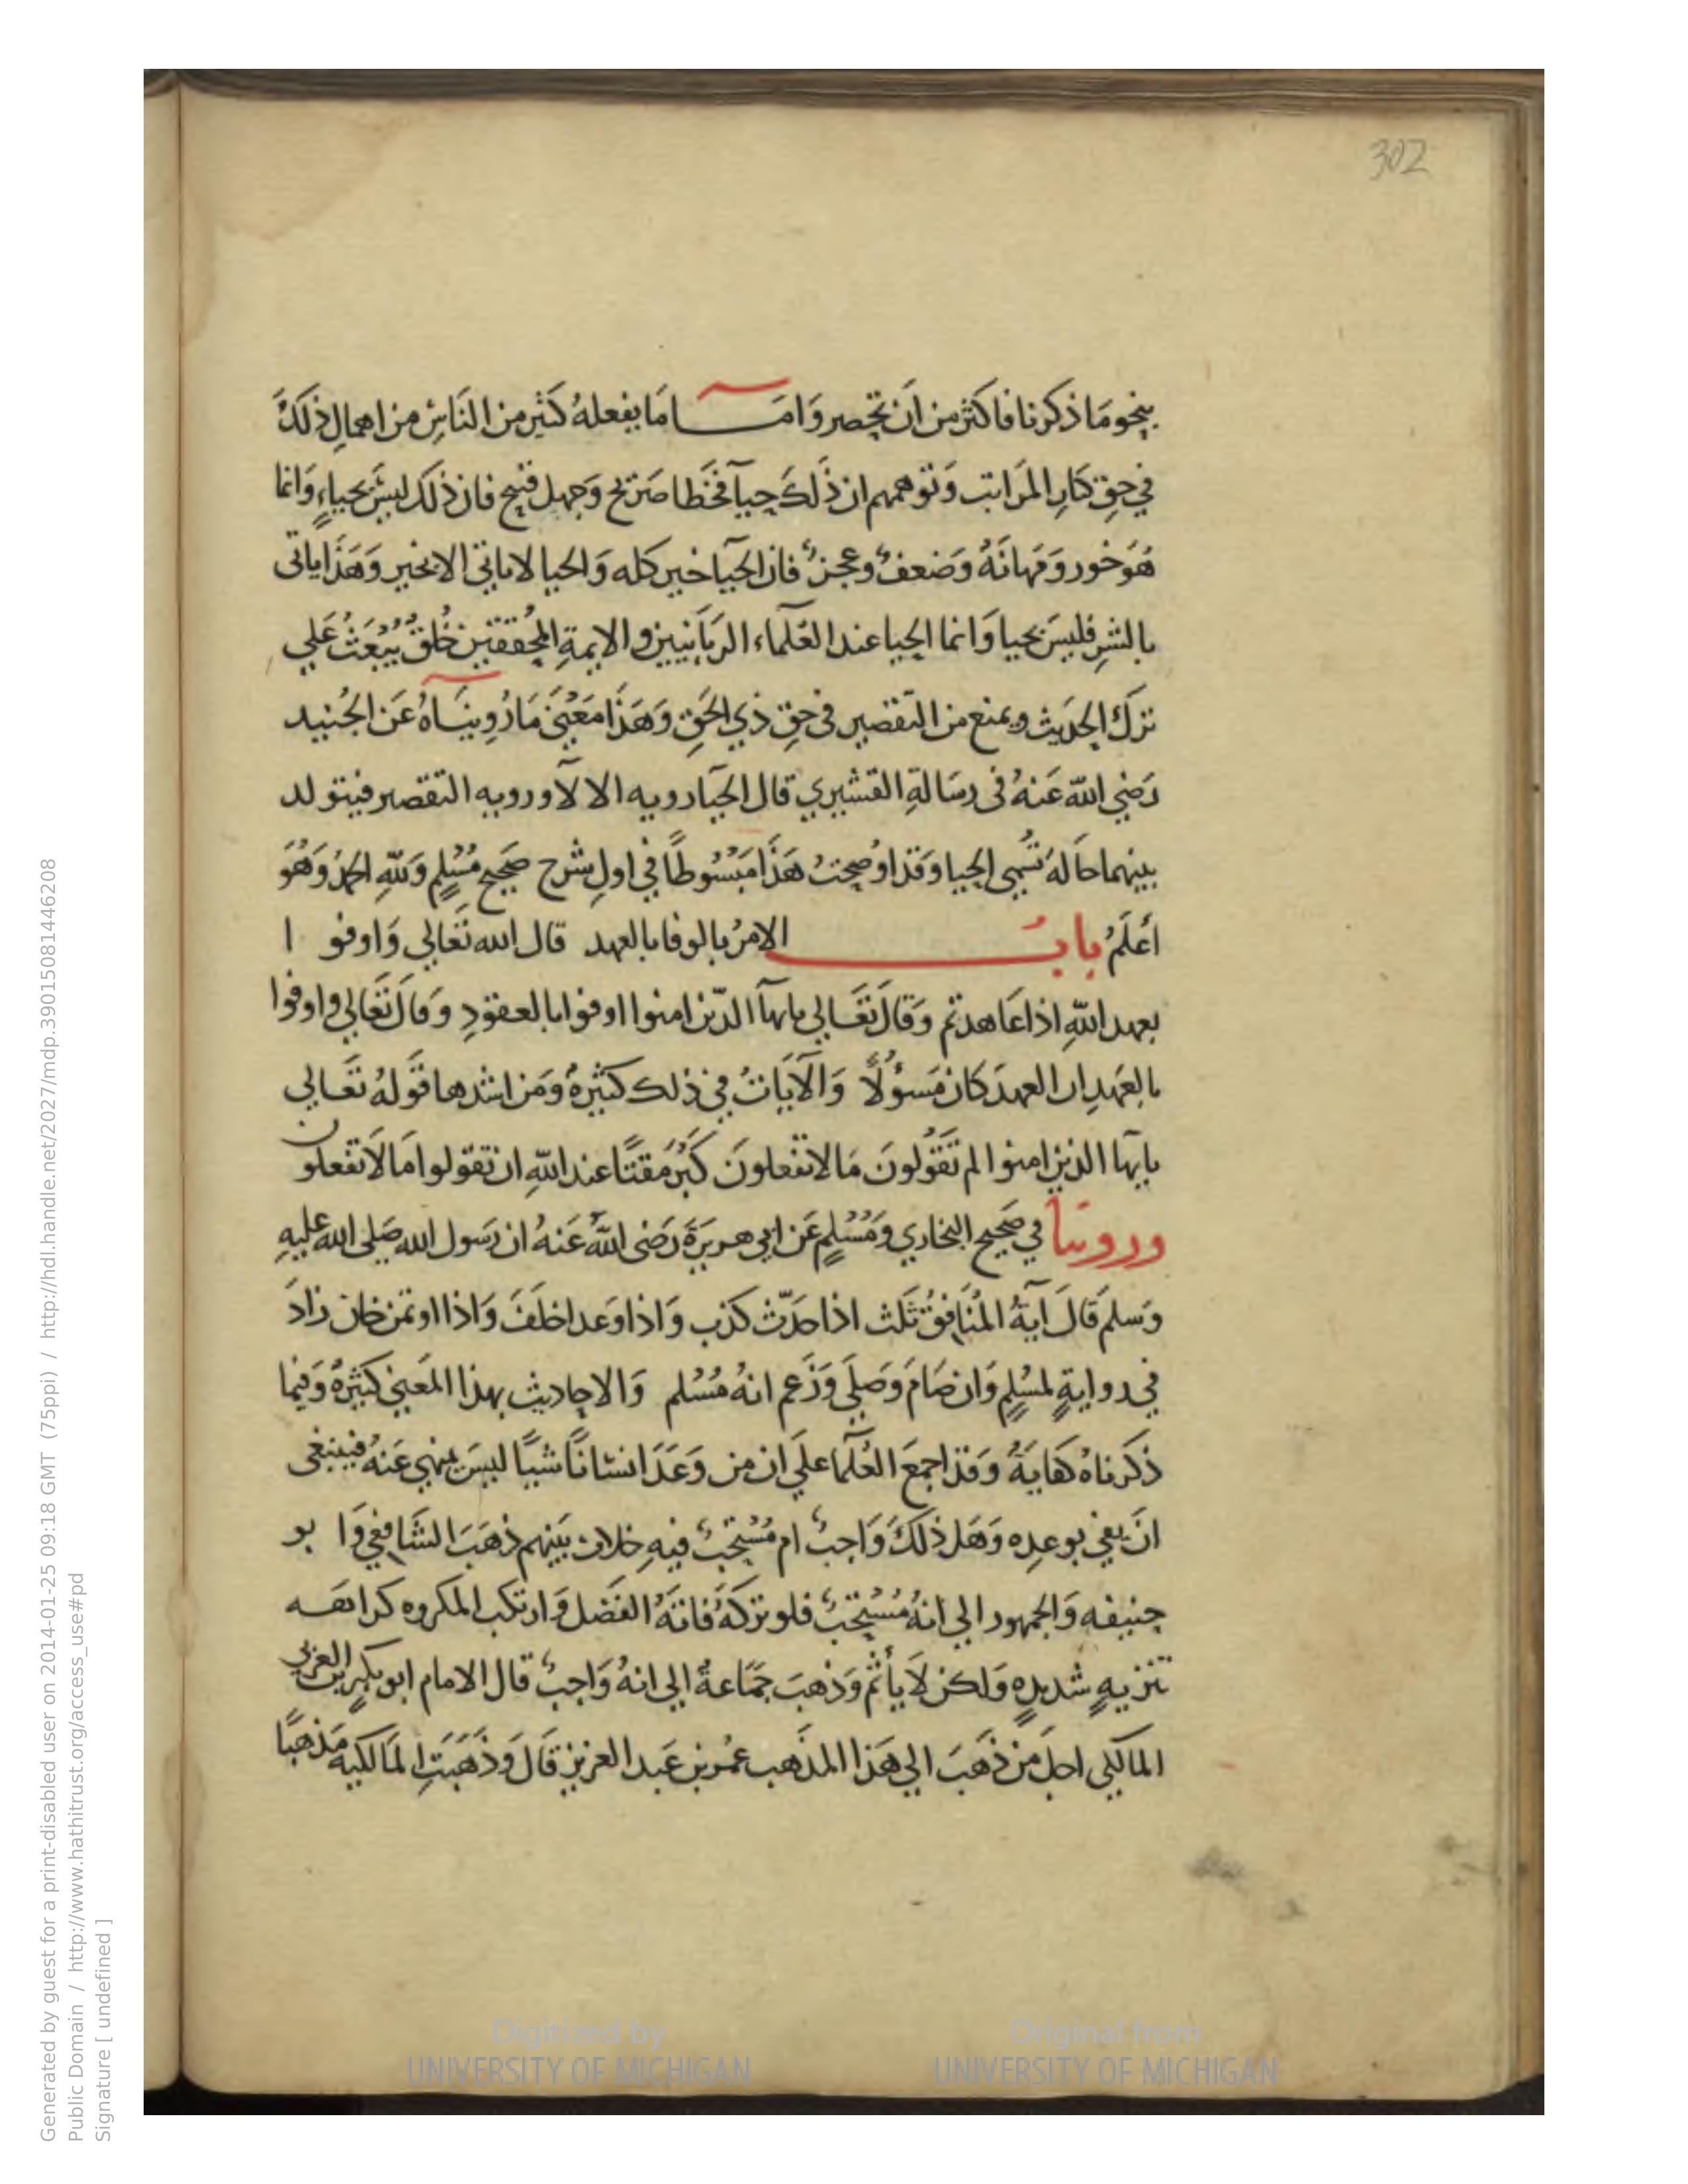 302
بنحو ما ذكرنا فاكثر من ان تحصر وَامَّا مَا يفعلهُ كَثير من النَاسِ من اهمالِ ذلكَ
في حقِ كبارِ المرَاتب وَتوهمهم ان ذَلكَ حيآ فخَطا صَريح وَجهل قبيح فان ذلك ليسَ بحياءٍ وَانما
هُوَ خور وَمَهانَةُ وَضعفُ وعجزُ فان الحيَآ خير كله وَالحيا لا ياتي الا بخير وَهَذَا ياتى
بالشرِ فليسَ بحيا وَانما الحيا عند العُلمآء الربَانيين والايمةِ المحُققين خُلقُ يُبْعَثُ عَلي
تركَ الحدَيث ويمنع من التقصير في حقِ ذي الحَقِ وَهَذَا مَعْنَى مَا رُوِينَاهُ عَن الجُنيد
رَضي اللّه عَنهُ فى رسَالةِ القشيري قال الحيَآ رويه الا لآ ورويه التقصر فيتولد
بينهما حَالهُ تُسمى الحيا وَقد اوُضحتُ هَذَا مَبْسُوطًا في اولِ شرح صَحيح مُسْلِم وَللّهِ الحَمدُ وَهُوَ
أعْلَمُ بابُ الامرُ بالوفا بالعهد قال الله تعَالي وَاوفو ا
بعهد اللّهِ اذا عَاهدتم وَقالَ تعَالي يا يهآ الذّين امنوا اوفوا بالعقودِ وَقالَ تعَالي واوفوا
بالعَهدِ ان العهدَ كان مَسؤُلًا وَالآيَاتُ في ذلك كثيرةُ وَمن اشدها قَولهُ تعَالي
يا يهآ الذين امنوا لم تقَولونَ مَا لا تفعلونَ كَبُرَ مَقتًا عند اللّهِ ان تقولوا مَا لَا تفعلون
وروينا في صَحيح البخاري وَمُسْلِمٍ عَن ابي هريرَةَ رَضى اللّهُ عَنهُ ان رَسول الله صَلى الله عليهِ
وَسلمَ قَالَ آيَةُ المُنَافِقُ ثَلث اذا حَدّث كذب وَاذا وَعد اخلَفَ وَاذا اوتمن خان زادَ
في روايةٍ لمسْلِمٍ وَان صَامَ وَصَلَي وَزَعم انهُ مُسْلم وَالاحاديث بهذا المَعني كَثيرةُ وَفيما
ذكرناهُ كفايَةُ وَقد اجمعَ العُلمَآ علَي ان من وَعَدَ انسَانًا شيًا ليسَ بمنهي عَنهُ فينبغى
انَ يفي بوعدِه وَهَل ذلَكَ وَاجبُ ام مُسْتحَبُ فيهِ خلاف بَينهم ذهَبَ الشَافِعي وَا بو
حنيفه وَالجمهور الي انهُ مُسْتحَبُ فلو تركهُ فَاتهُ الفَضل وَارتكب المكروه كراهه
تنزيهٍ شديدهٍ وَلكن لاَ يأثم وَذهبَ جَمَاعةُ الي انهُ وَاجبُ قال الامام ابو بكرٍ بن العَربي
المالكى اجل من ذهَبَ الي هَذا المذَهب عمُر بن عَبد العزيز قَالَ وَذهَبَتِ المَالكيه مَذهبًا
Generated by guest for a print-disabled user on 2014-01-25 09:18 GMT (75ppi) / http://hdl.handle.net/2027/mdp.39015081446208
Public Domain / http://www.hathitrust.org/access_use#pd
Signature [ undefined ]
Digitized by
UNIVERSITY OF MICHIGAN
Original from
UNIVERSITY OF MICHIGAN